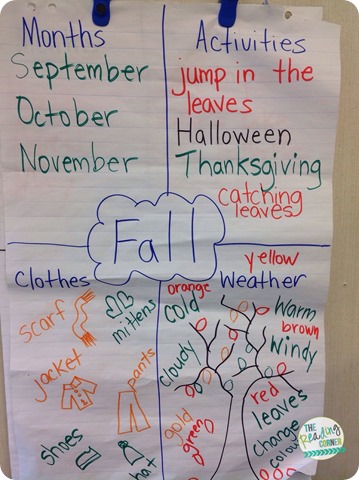 Months
September
October
November
Activities
jump in the
leaves
Halloween
Thanksgiving
catching
leaves
Fall
Clothes
scarf
mittens
jacket
pants
shoes
hat
Weather
yellow
orange
cold
warm
brown
windy
cloudy
gold
green
red
leaves
change
colour
THE
Reading
CORNER